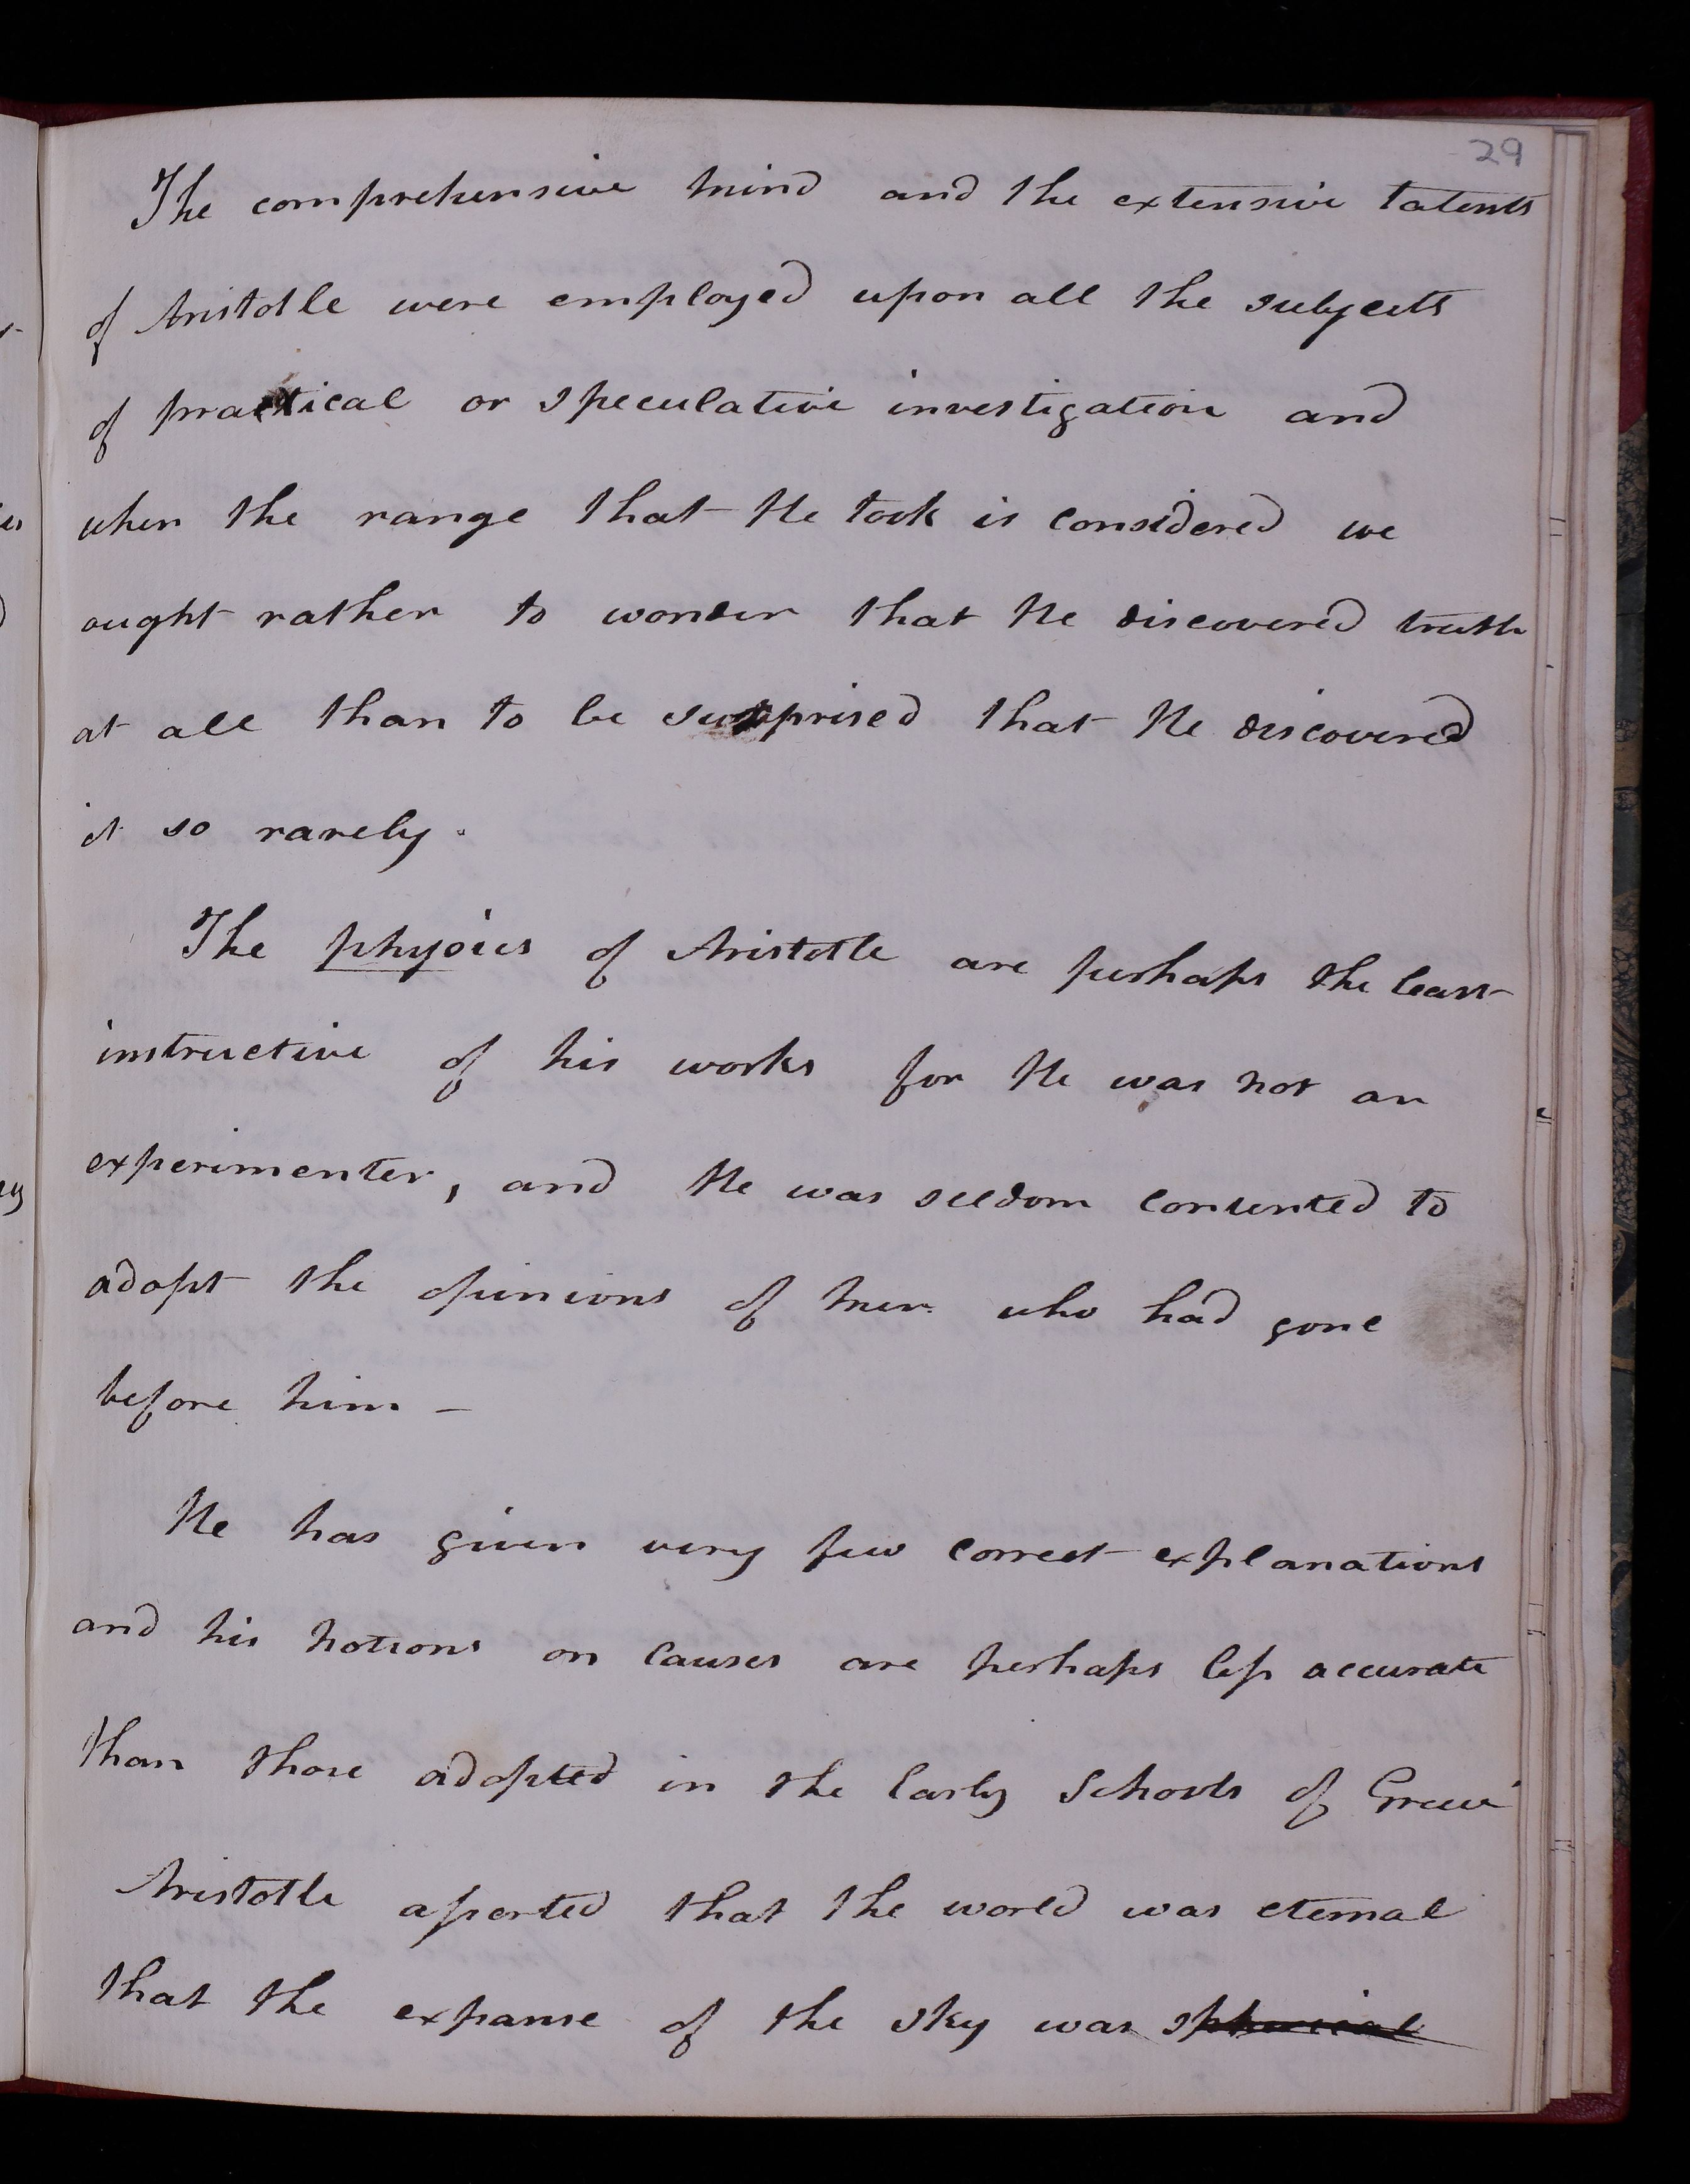 29
The comprehensive mind and the extensive talents
of Aristotle were employed upon all the subjects
of practical or speculative investigation and
when the range that He took is considered we
ought rather to wonder that He discovered truth
at all than to be surprised that He discovered
it so rarely.
The physics of Aristotle are perhaps the least
instructive of his works for He was not an
experimenter, and He was seldom contented to
adopt the opinions of men who had gone
before him -
He has given very few correct explanations
and his notions on causes are perhaps less accurate
than those adopted in the Early Schools of Greece
Aristotle asserted that the world was eternal
that the expanse of the sky was spherical